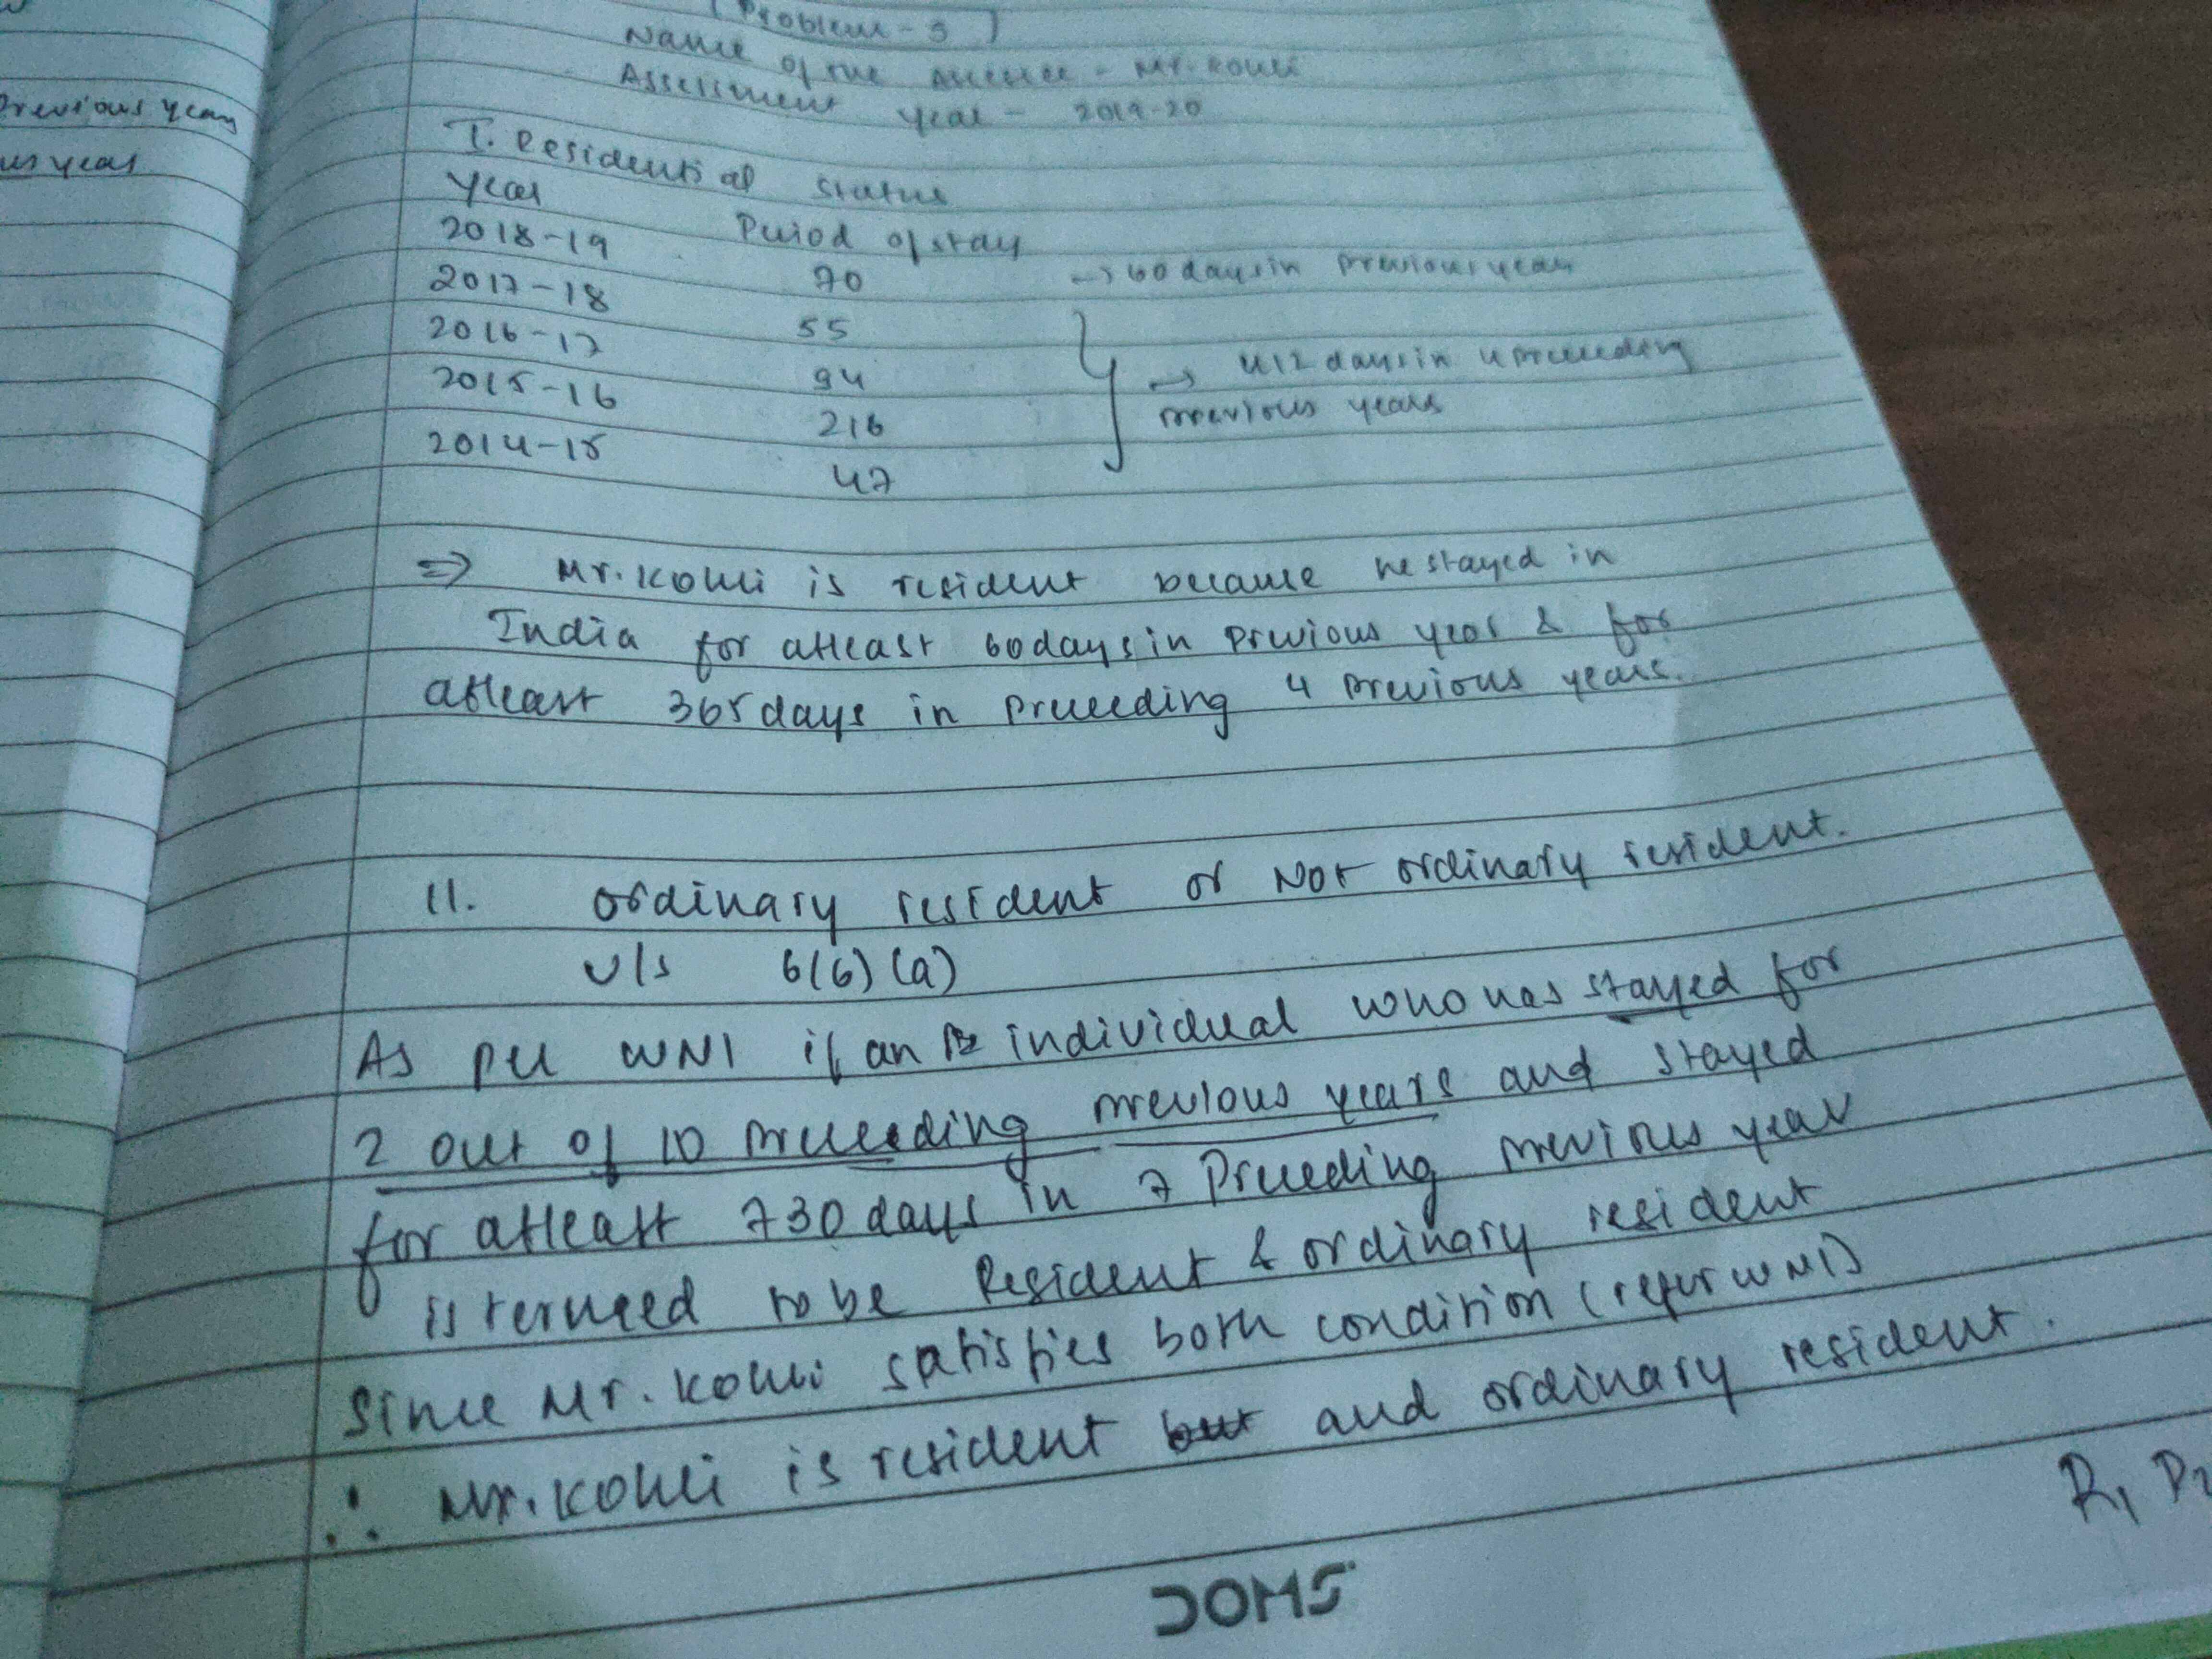 Previous year
us year
(Problem - 3)
Name of the Assessee - Mr. Kohli
Assessment year - 2019-20
I. Residential status
Year Period of stay
2018-19 70 -> 60 days in previous year
2017-18 55
2016-17 94 -> 412 days in 4 preceeding
2015-16 216 previous years
2014-15 47
=> Mr. Kohli is resident because he stayed in
India for atleast 60 days in previous year & for
atleast 365 days in preceeding 4 previous years.
II. ordinary resident or Not ordinary resident.
u/s 6(6)(a)
As per WN1 if an individual who has stayed for
2 out of 10 preceeding previous years and stayed
for atleast 730 days in 7 preceeding previous year
is termed to be Resident & ordinary resident
Since Mr. Kohli satisfies both condition (refer WN1)
∴ Mr. Kohli is resident but and ordinary resident.
R1 P2
DOMS